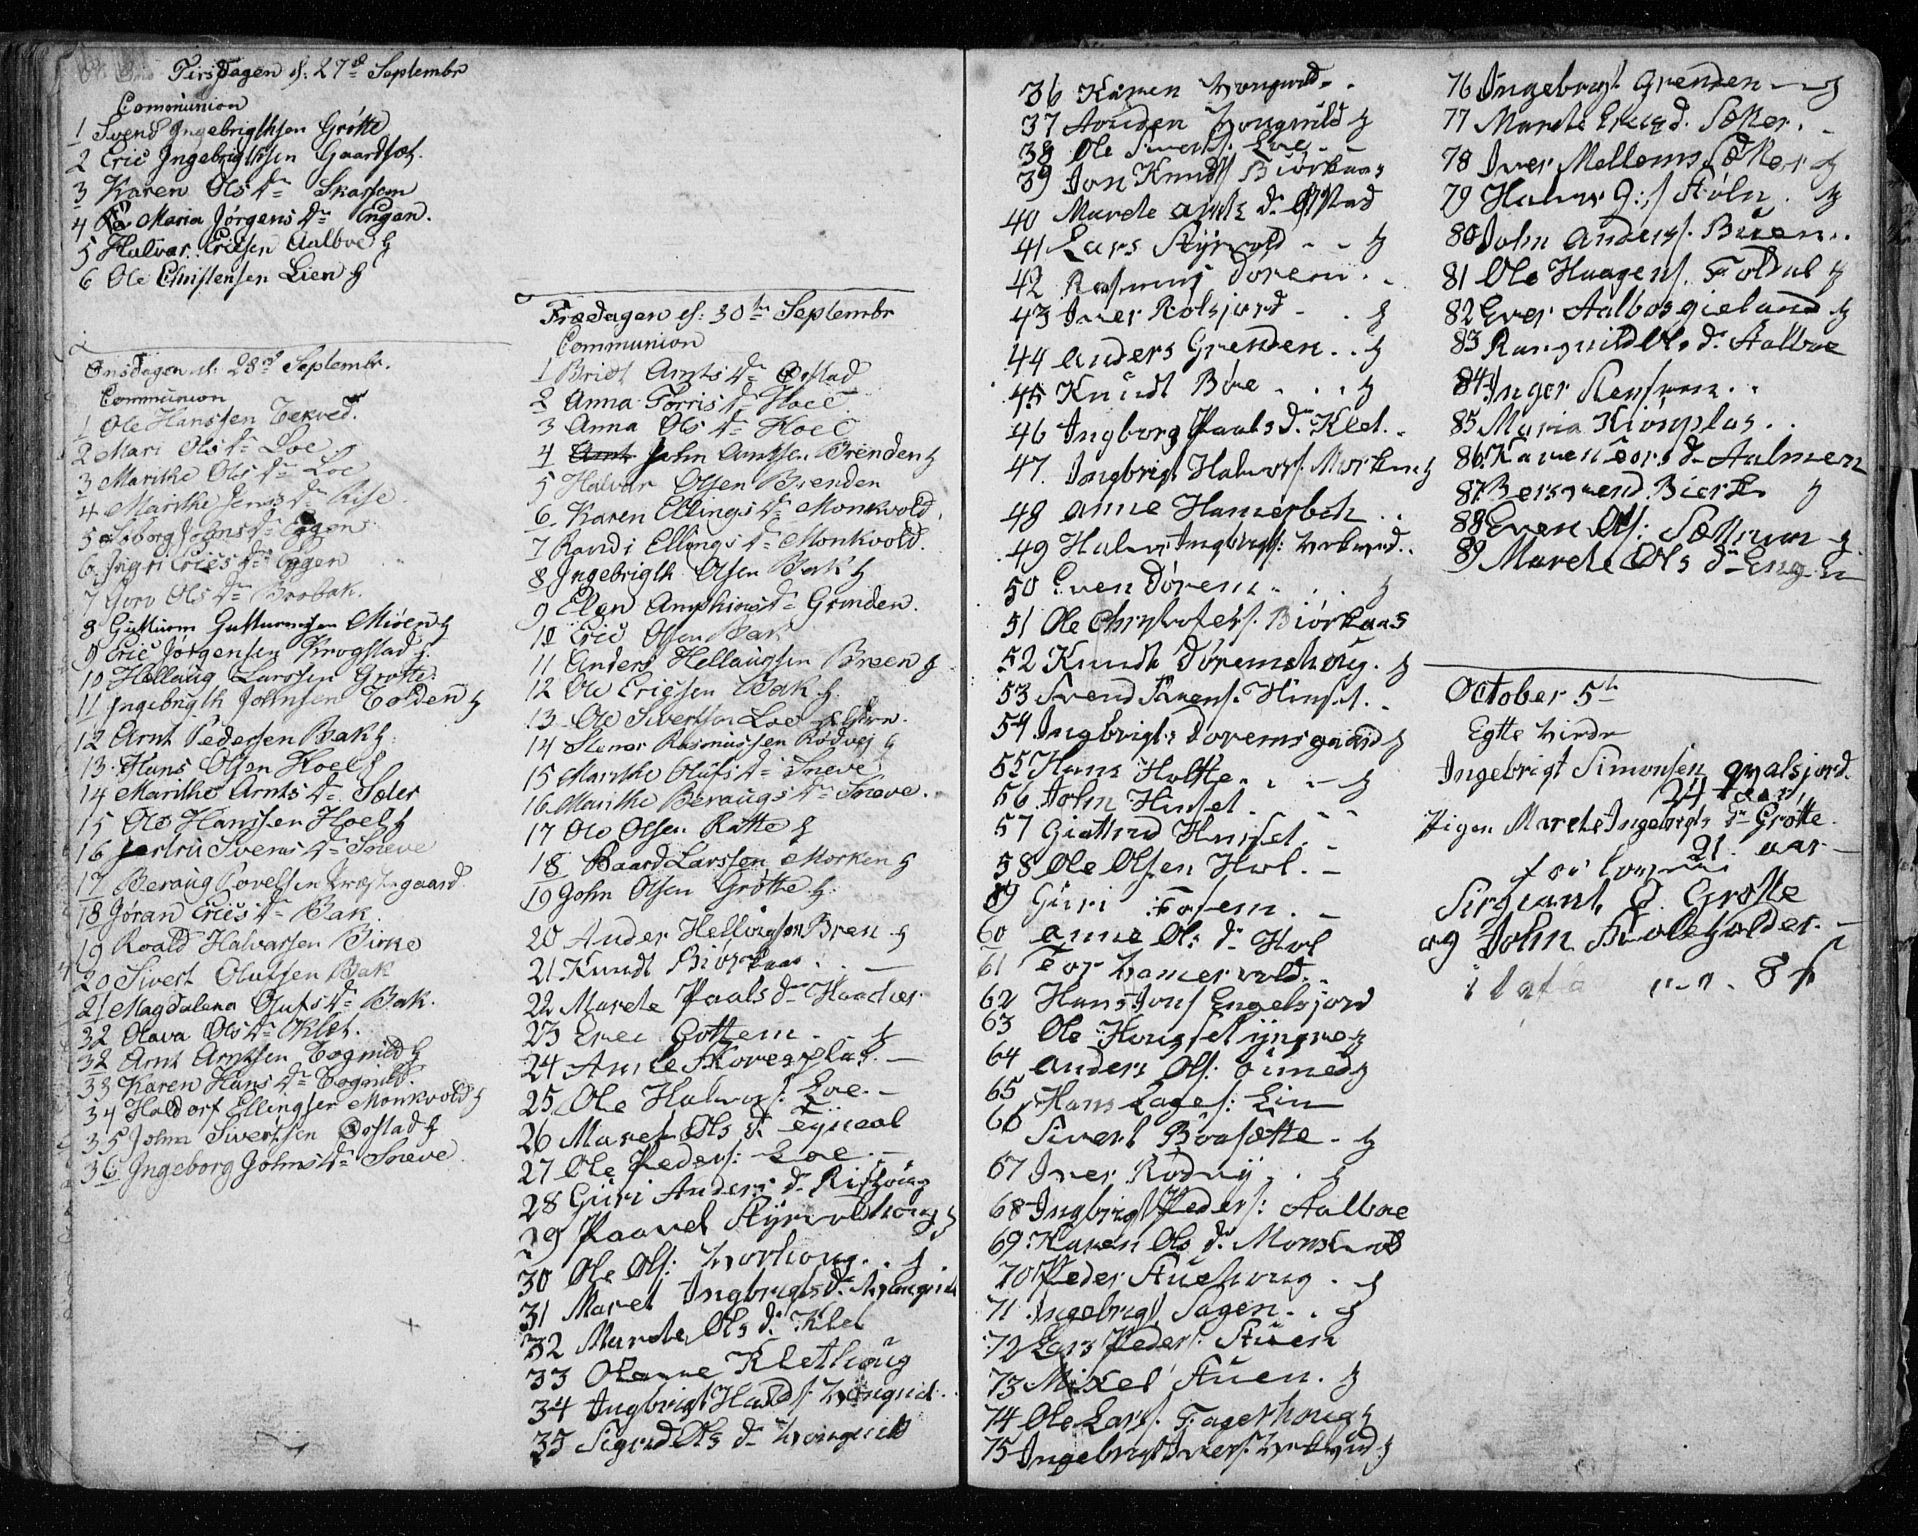 Tirsdagen d: 27de Septembr
Communion
1 Svend Ingebrigthsen Grøtte
2 Eric Ingebrigthsen Gaardset.
3 Karen Ols Dr Skarsem
4 Maria Jørgens Dr Engan.
5 Halvar Ericsen Aalboe
6 Ole Christensen Lien
Onsdagen d. 28de Septembr.
Communion
1 Ole Hanssen Tekved.
2 Mari Ols Dr Loe
3 Marithe Ols Dr Loe
4 Marithe Jens Dr Rise.
5 Siborg Johns Dr Eggen
6 Ingri Erics Dr Eggen
7 Goro Ols Dr Brobak.
8 Gutturm Gutturmsen Miøen
9 Eric Jørgensen Krogstad
10 Hellaug Larssen Grøtte.
11 Ingebrigth Johnsen Tolden
12 Arnt Pedersen Bak
13 Hans Olsen Hoel
14 Marithe Arnts Dr Sæter
15 Ole Hanssen Hoel
16 Jertru Svens Dr Sneve
17 Beraug Povelsen Præstegaard.
18 Gøran Erics Dr Bak.
19 Roald Halvarsen Birke
20 Sivert Olufsen Bak
21 Magdalena Olufs Dr Bak.
32 Olava Ols Dr Klet.
32 Arnt Arntsen Tognild
33 Karen Hans Dr Tognild.
34 Haldorf Ellingsen Monkvold
35 John Sivertsen Østad
36 Ingeborg Johns Dr Sneve
Fredagen d: 30te Septembr
Communion
1 Briot Arnts Dr Østad
2 Anna Torris Dr Hoel
3 Anna Ols Dr Hoel
4 Arnt John Arntsen Brenden
5 Halvar Olsen Brenden
6 Karen Ellings Dr Monkvold
7 Randi Ellings Dr Monkvold.
8 Ingebrigth Olsen Bak
9 Elen Amphins Dr Grinden.
10 Eric Olsen Bak
11 Anders Hellaugsen Breen
12 Ole Ericsen Bak
13 Ole Sivertsen Loe
14 Stener Rasmussen Rødvej
15 Marithe Olufs Dr Sneve
16 Marithe Beraugs Dr Sneve.
17 Ole Olsen Rotte
18 Baard Larssen Morken
19 John Olsen Grøtte
20 Ander Hellingsen Bren
21 Knudt Biørkaas
22 Marete Paals Dr Haacker
23 Erec Gottem
24 Arnt Skoresplas
25 Ole Halvors: Loe
26 Maret Ols Dr
27 Ole Peders: Loe
28 Guri Anders Dr Rishoug
29 Paavel Styrvoldhoug
30 Ole Ols: Vorhoug
31 Maret Ingbrigts Dr
32 Marete Ols Dr Klet
33 Olanne Klethoug
34 Ingbrigt Halds:
35 Sigrid Ols Dr
36 Karen
37 Aouden
38 Ole Sivers: Loe
39 Jon Knuds Biørkaas
40 Marete Arnts Dr Østad
41 Lars Styrvold
42 Rasmus Dorem
43 Iver Rotsjord
44 Anders Grenden
45 Knudt Boe
46 Ingborg Paals Dr Klet.
47. Ingbrigt Halvors: Morken
48 Anne Hamerbek
49 Halvor Ingbrigts:
50 Even Dørem
51 Ole Christofers: Biørkaas
52 Knudt Døremshoug.
53 Svend Svens: Hinset.
54 Ingbrigt Doremsgaard
55 Hans Holtte
56 John Hinset
57 Giottrud Hinset.
58 Ole Olsen Hoel.
59 Guri Fossem.
60 Anne Ols Dr Hoel
61 Tor Hamervold.
62 Hans Jons Engelsjord
63 Ole Hougset yngre
64 Anders Ols:
65 Hans Lages: Lien
66 Sivert Boasætte.
67 Iver Rødvej
68 Ingbrigt Peders: Aalboe
69 Karen Ols Dr
70 Peder Stuehoug
71 Ingebrigt Sagen
72 Lars Peders: Stuen
73 Mikel Stuen.
74 Ole Lars: Fagerhoug
75 Ingebrigt Ivers:
76 Ingebregt Grenden
77 Marete Sæter.
78 Iver Mellemsæter
79 Halvor Støln
80 John Anders: Buen
81 Ole Haagens: Foldal
82 Ever Aalbosgieland
83 Rangnild Ols Dr Aalboe
84 Inger Stensem
85 Maria Kiønplas
86 Karen Tors Dr Aalmen
87 Bersvend Bierk
88 Even Ols: Sættrum
89 Marete Ols Dr Engen
October 5te
Egtte viede
Ingebrigt Simonsen Qvalsjord.
24 aar
Pigen Marete Ingebrigts Dr Grøtte.
21 aar
forlovere
Sirgiant O. Grøtte
og John Skoleholder.